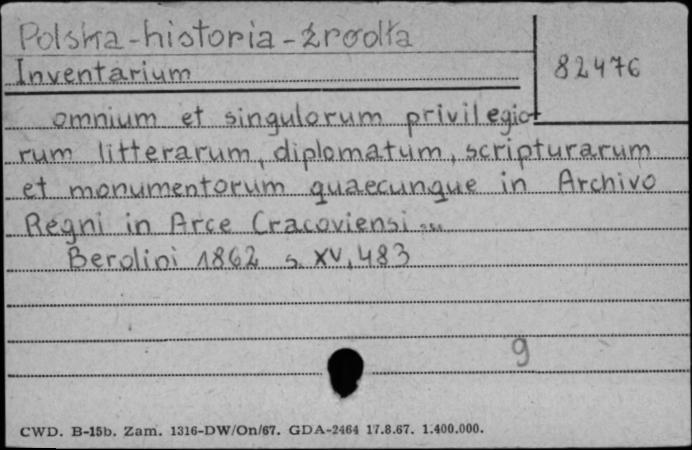 Polska-historia-źrodła
82476
Inventarium
omnium et singulorum privilegio-
rum litterarum, diplomatum, scripturarum
et monumentorum quaecunque in Archivo
Regni in Arce Cracoviensi ...
Berolini 1862 s. XV, 483
9
CWD. B-15b. Zam. 1316-DW/On/67. GDA-2464 17.8.67. 1.400.000.